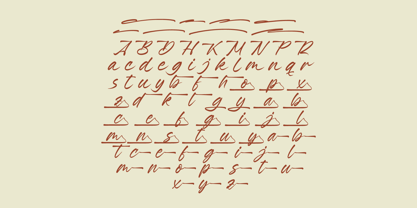 A B D H K M N P R
a c d e g i j k l m n q r
s t u y b f h o p x
z d k l g y a b
c e f g i j l
m n s t u y a b
t c e f g i j l
m n o p s t u
x y z